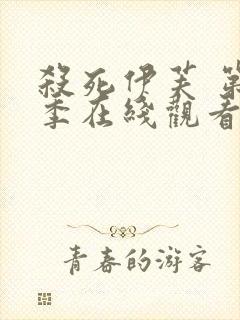 殺死伊芙 第
季在綫觀看
青春的游客